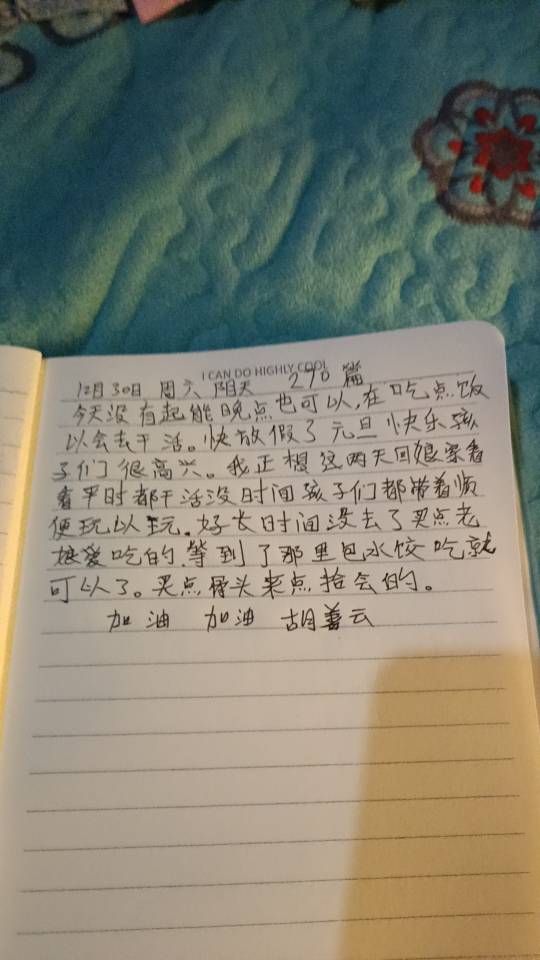 I CAN DO HIGHLY COOL
12月30日 周六 阴天 270篇
今天没有起能晚点也可以,在吃点饭
以会去干活。快放假了元旦快乐孩
子们很高兴。我正想这两天回娘家看
看平时都干活没时间孩子们都带着顺
便玩以玩。好长时间没去了买点老
娘爱吃的,等到了那里包水饺吃就
可以了。买点骨头来点拾会的。
加油 加油 胡善云